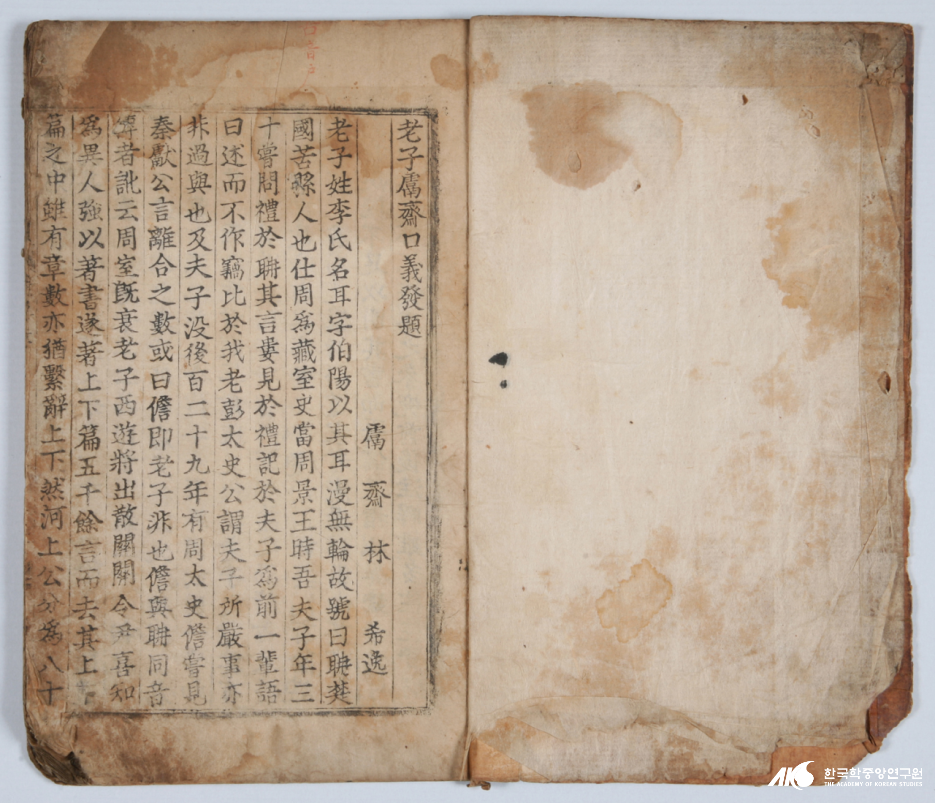 老子鬳齋口義發題
鬳齋林希逸
老子姓李氏名耳字伯陽以其耳漫無輪故號曰聃楚
國苦縣人也仕周爲藏室史當周景王時吾夫子年三
十嘗問禮於聃其言屢見於禮記於夫子爲前一輩語
曰述而不作竊比於我老彭太史公謂夫子所嚴事亦
非過與也及夫子没後百二十九年有周太史儋嘗見
秦獻公言離合之數或曰儋即老子非也儋與聃同音
傳者訛云周室旣衰老子西遊將出散關關令尹喜知
爲異人強以著書遂著上下篇五千餘言而去其上下
篇之中雖有章數亦猶繫辭上下然河上公分爲八十
한국학중앙연구원
THE ACADEMY OF KOREAN STUDIES